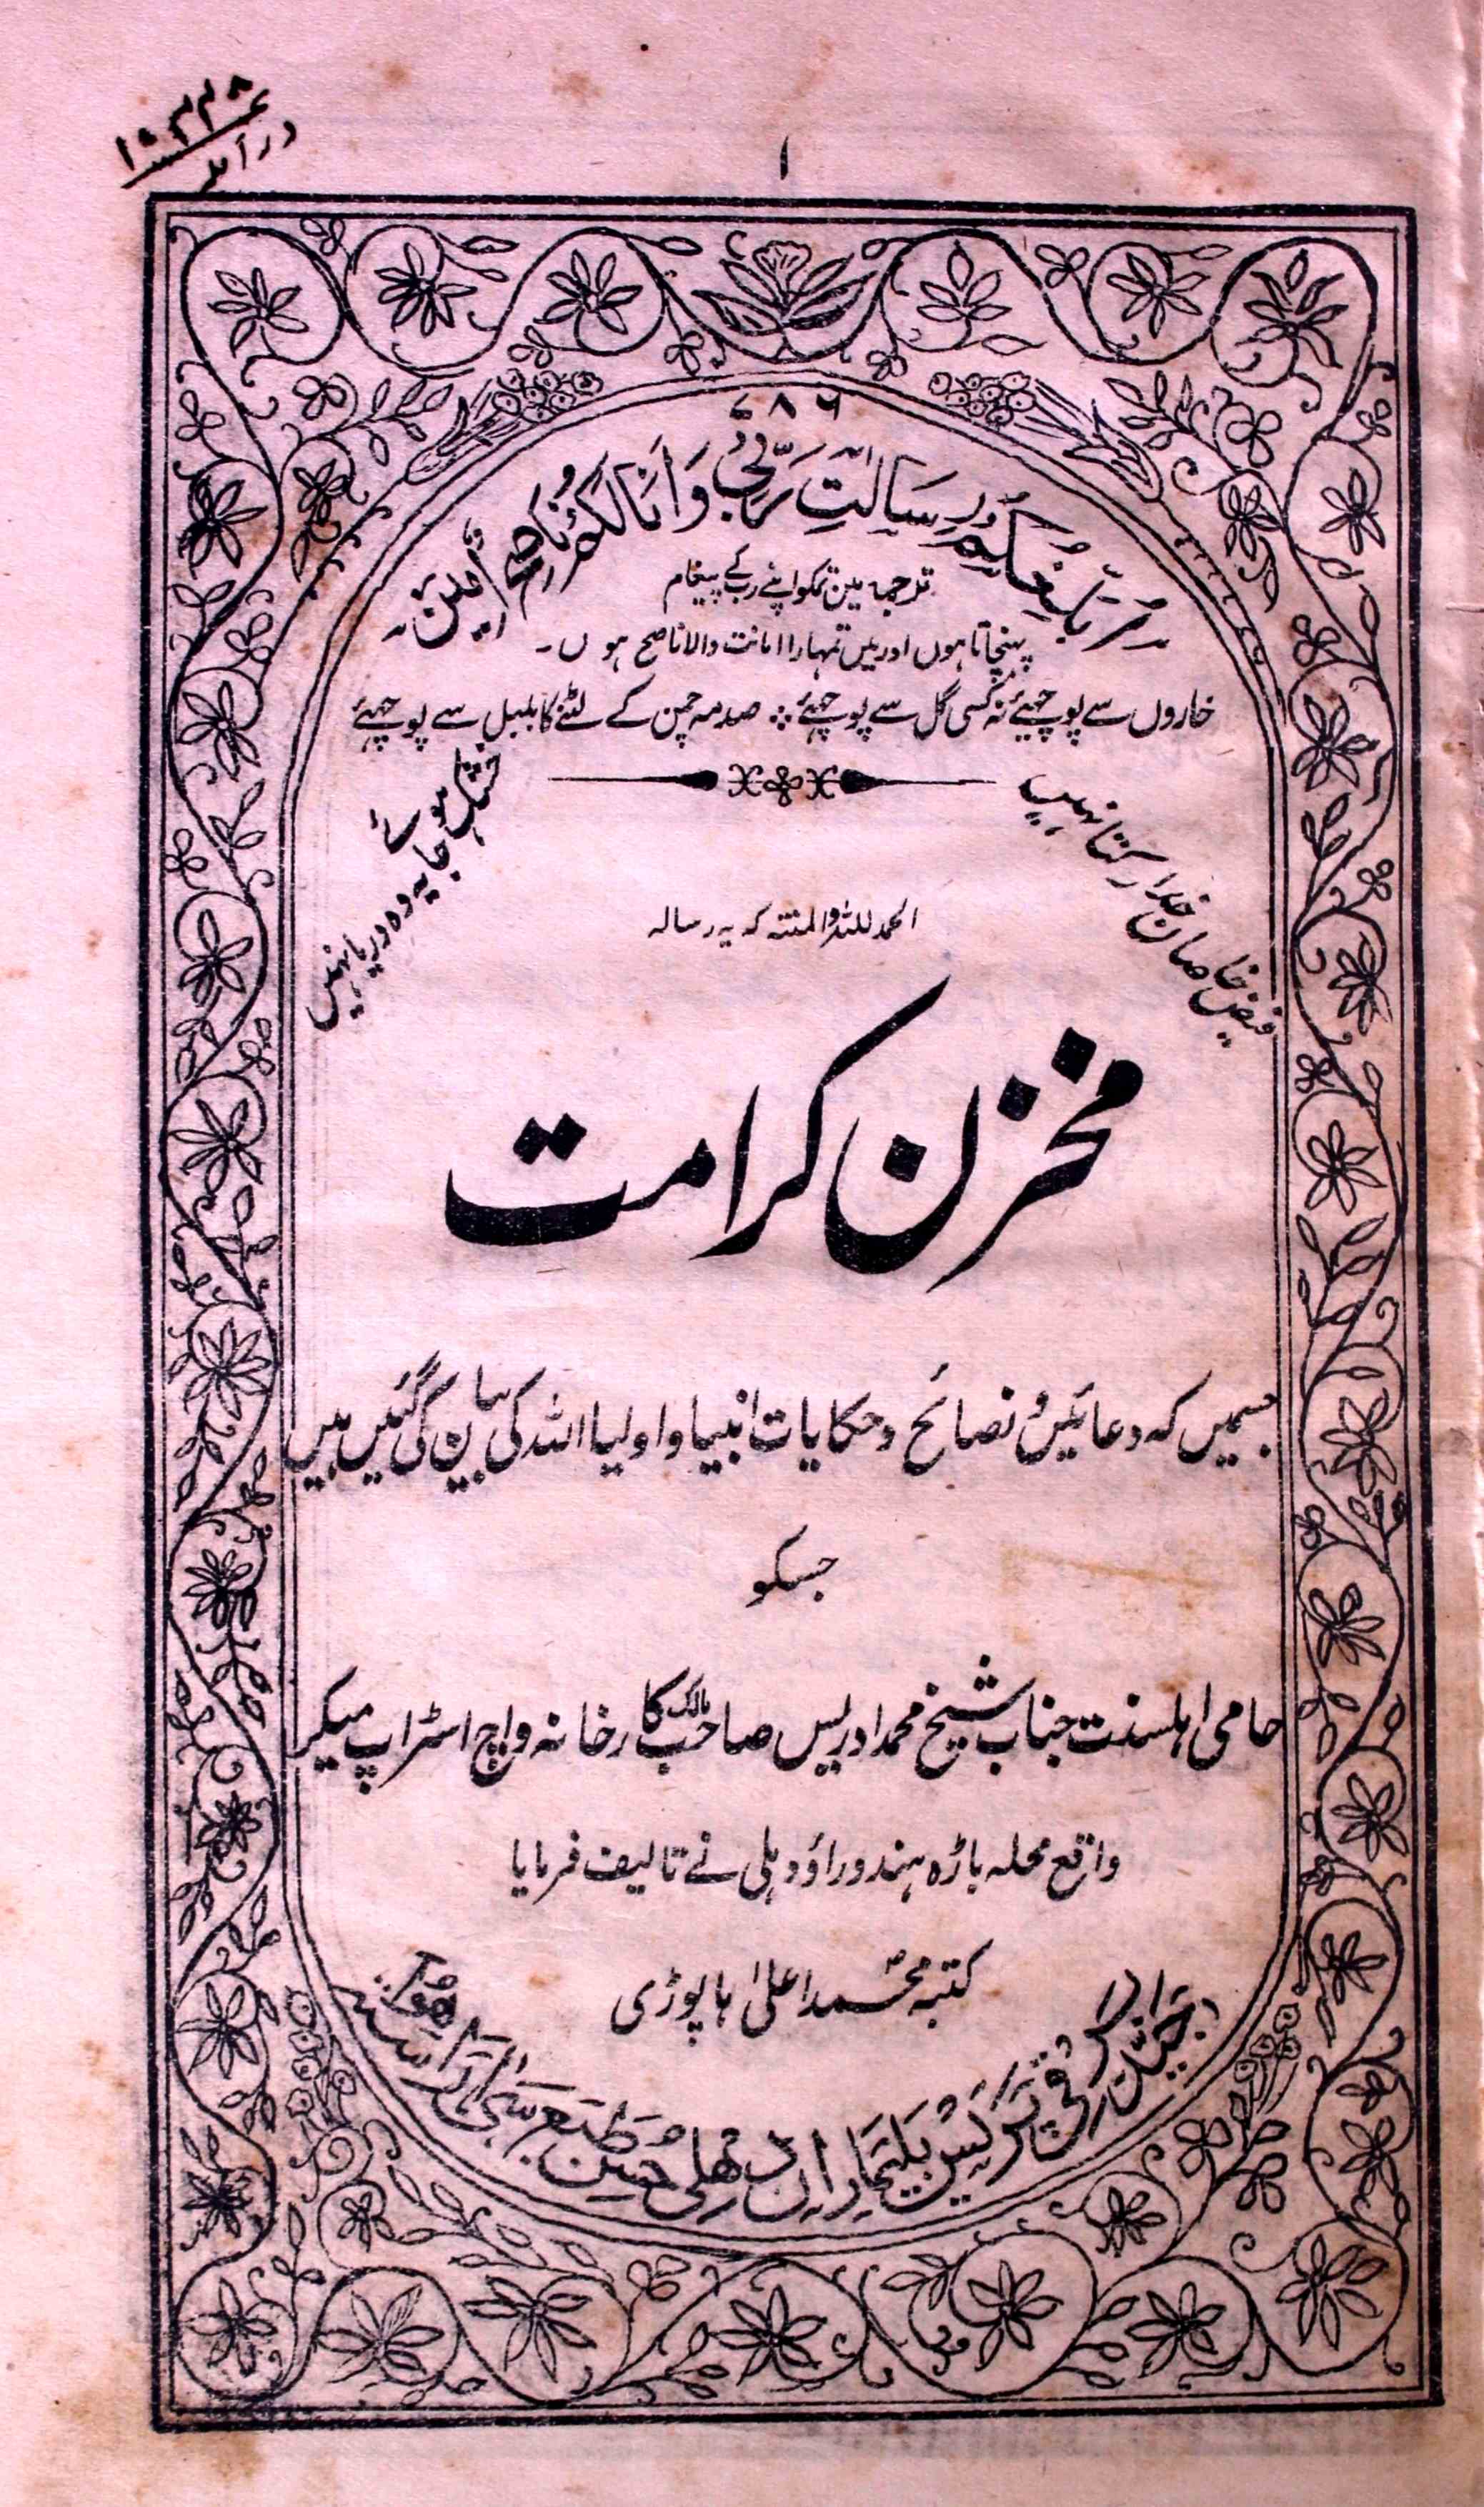 ۱
۷۸۶
اُبَلِّغُكُمْ رِسَالٰتِ رَبِّیْ وَاَنَا لَكُمْ نَاصِحٌ اَمِیْنٌ
ترجمہ مین تمکو اپنے رب کے پیغام
پہنچاتا ہوں اور میں تمہارا امانت والا ناصح ہوں۔
خاروں سے پوچھیئے نہ کسی گل سے پوچھیئے صدمہ چمن کے لٹنے کا بلبل سے پوچھیئے
فیض خاصان خدا رکتا نہیں
خشک ہو جائے یہ وہ دریا نہیں
الحمد للہ والمنتہ کہ یہ رسالہ
مخزن کرامت
جسمیں کہ دعائیں و نصائح و حکایات انبیا و اولیا اللہ کی بیان کی گئیں ہیں
جسکو
حامی اہلسنت جناب شیخ محمد ادریس صاحب مالک کارخانہ واچ اسٹراپ میکر
واقع محلہ باڑہ ہندوراؤ دہلی نے تالیف فرمایا
کتبہ محمد اعلیٰ ہاپوڑی
پریس بلیماران دہلی مین طبع